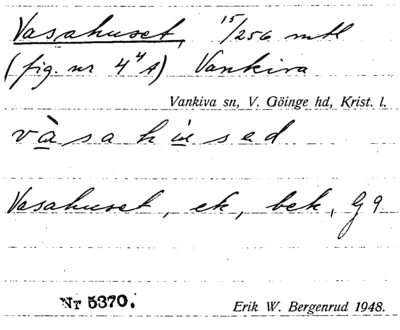 Vasahuset, 15/256 mtl
(fig. nr 4⁴A) Vankiva
Vankiva sn, V. Göinge hd, Krist. l.
vàsahùsəd
Vasahuset, ek, bek, Gg
Nr 5370.
Erik W. Bergenrud 1948.